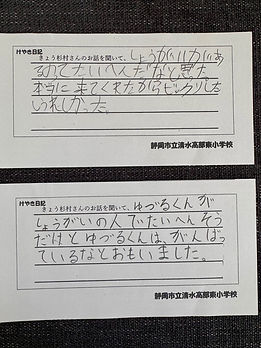 けやき日記
きょう杉村さんのお話を聞いて、しょうがい
るのでたいへんだなと思った。
本当に来てくれたからビックリした
うれしかった。
静岡市立清水高部東小学校
けやき日記
きょう杉村さんのお話を聞いて、ゆづるくんが
しょうがいの人でたいへんそう
だけどゆづるくんは、がんばっ
ているなとおもいました。
静岡市立清水高部東小学校